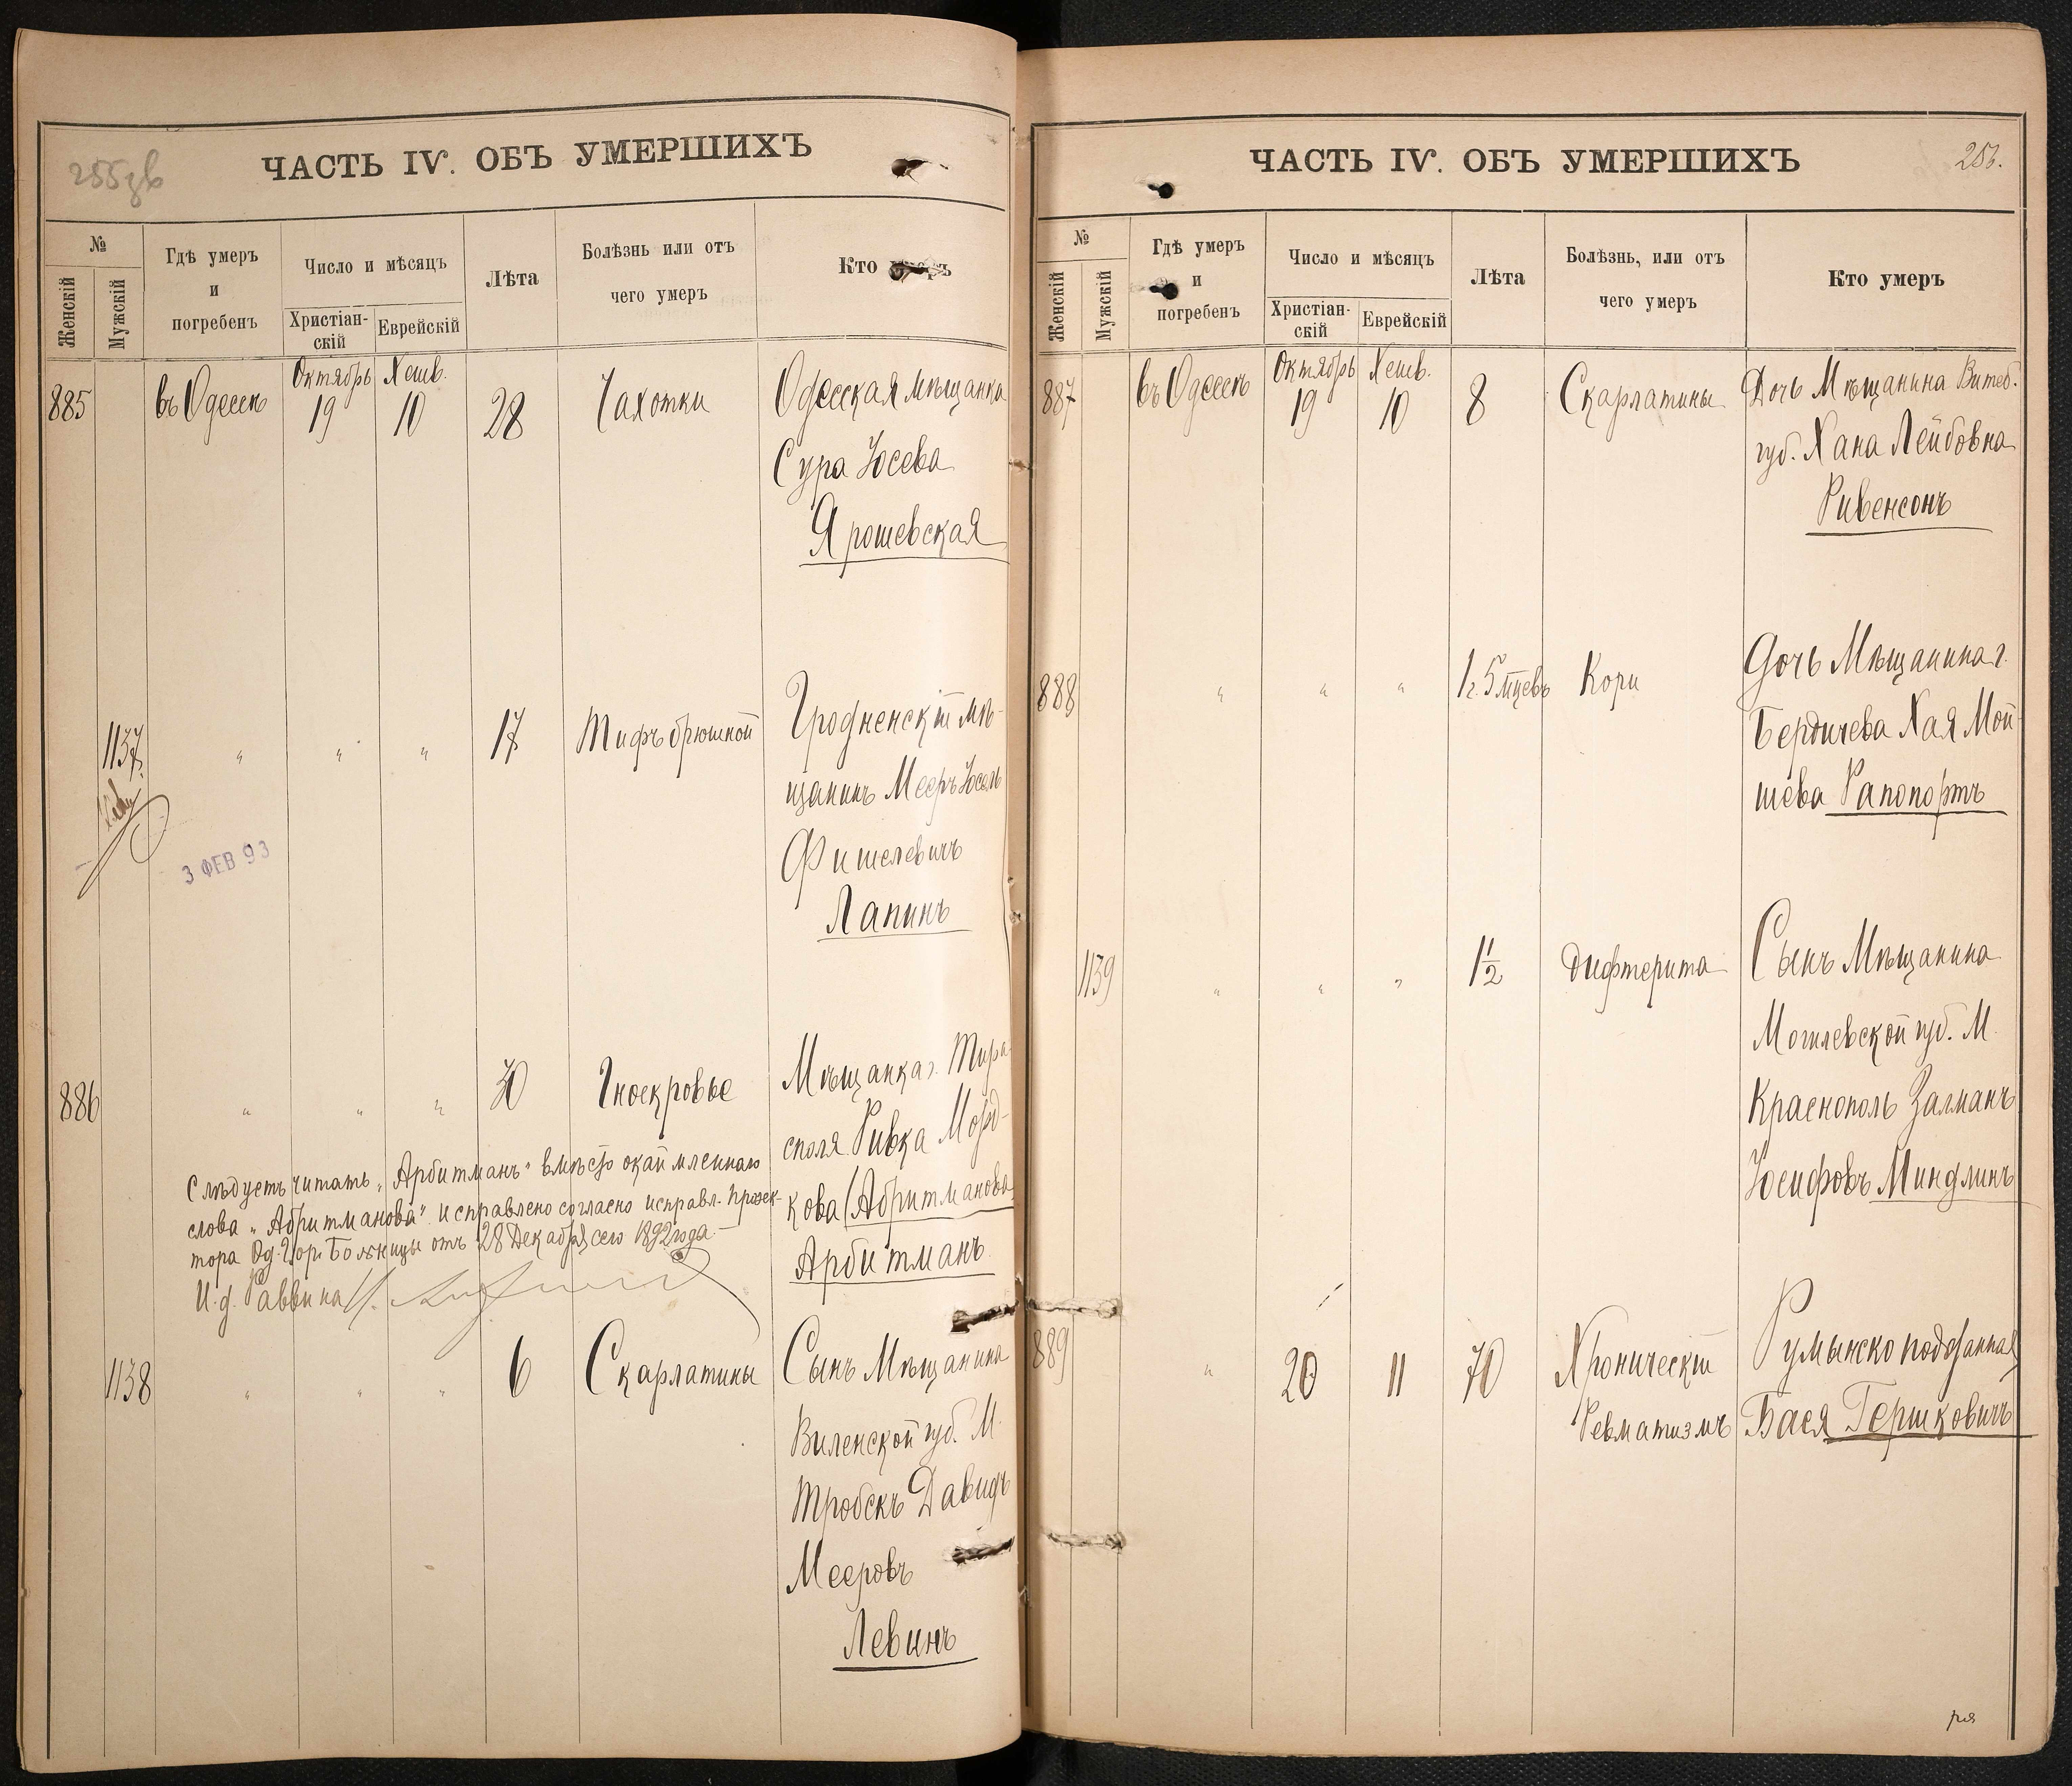 255зв
ЧАСТЬ IV. ОБЪ УМЕРШИХЪ
№
Женскій
Мужскій
Гдѣ умеръ
и
погребенъ
Число и мѣсяцъ
Христіан-
скій
Еврейскій
Лѣта
Болѣзнь или отъ
чего умеръ
Кто умеръ
885
въ Одессѣ
Октябрь
19
Хешв.
10
28
Чахотки
Одесская мѣщанка
Сура Іосева
Ярошевская
1137
"
"
"
17
Тифъ брюшной
Гродненскій мѣ-
щанинъ Мееръ Іосель
Фишелевичъ
Лапинъ
3 ФЕВ 93
886
"
"
"
30
Гноекровье
Мѣщанка г. Тира-
споля Ривка Морд-
кова (Абритманова)
Арбитманъ
Слѣдуетъ читать „Арбитманъ" вмѣсто окаймленнаго
слова „Абритманова" исправлено согласно исправл. прозек-
тора Од. Гор. Больницы отъ 28 Декабря сего 1892 года.—
И. д. Раввина
1138
"
"
"
6
Скарлатины
Сынъ Мѣщанина
Виленской губ. М.
Тробскъ Давидъ
Мееровъ
Левинъ
256.
ЧАСТЬ IV. ОБЪ УМЕРШИХЪ
№
Женскій
Мужскій
Гдѣ умеръ
и
погребенъ
Число и мѣсяцъ
Христіан-
скій
Еврейскій
Лѣта
Болѣзнь, или отъ
чего умеръ
Кто умеръ
887
въ Одессѣ
Октябрь
19
Хешв.
10
8
Скарлатины
Дочь Мѣщанина Витеб.
губ. Хана Лейбовна
Ривенсонъ
888
"
"
"
1 г. 5 мцевъ
Кори
Дочь Мѣщанина г.
Бердичева Хая Мой-
шева Рапопортъ
1139
"
"
"
1 1/2
Дифтерита
Сынъ Мѣщанина
Могилевской губ. М.
Краснополь Залманъ
Іосифовъ Миндлинъ
889
"
20
11
70
Хроническій
Ревматизмъ
Румынско подданная
Бася Гершковичъ
ря